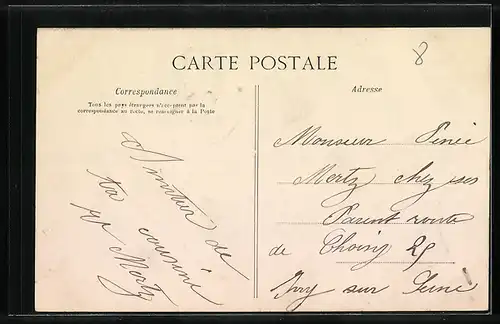 8
CARTE POSTALE
Correspondance
Tous les pays étrangers n'acceptent pas la
correspondance au recto, se renseigner à la Poste
Amitié de
ta cousine
Mertz
Adresse
Monsieur René
Mertz chez ses
Parent route
de Choisy 25
Ivry sur Seine